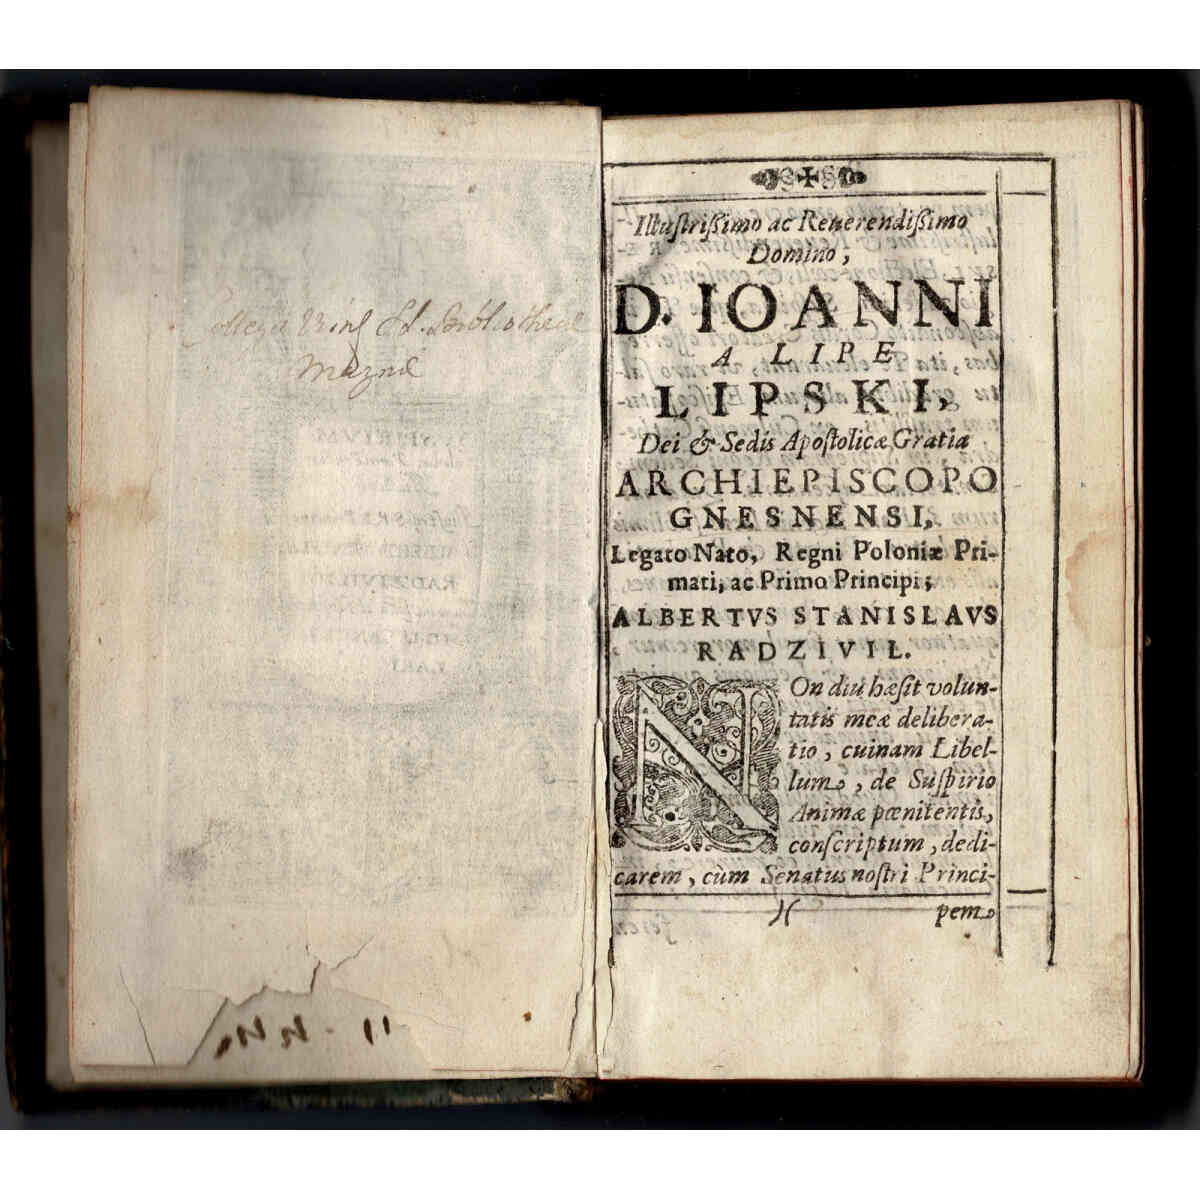 Illuſtriſſimo ac Reuerendiſſimo
Domino,
D. IOANNI
A LIPE
LIPSKI,
Dei & Sedis Apoſtolicæ Gratia
ARCHIEPISCOPO
GNESNENSI,
Legato Nato, Regni Poloniæ Pri-
mati, ac Primo Principi;
ALBERTVS STANISLAVS
RADZIVIL.
NOn diu hæſit volun-
tatis meæ delibera-
tio, cuinam Libel-
lum, de Suſpirio
Animæ pœnitentis,
conſcriptum, dedi-
carem, cùm Senatus noſtri Princi-
)(
pem